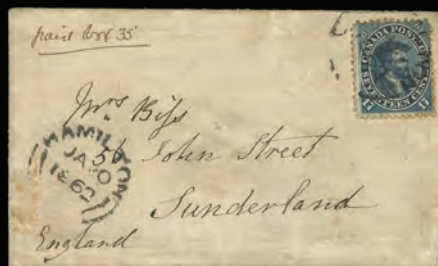 paid Box 35
CANADA POSTAGE
SEVENTEEN CENTS
17 17
Mrs Biss
56 John Street
Sunderland
England
HAMILTON
JA 30
1862